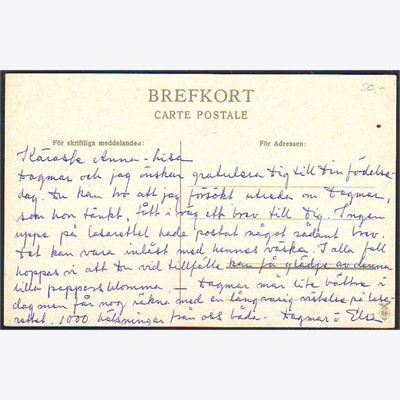 50.-
BREFKORT
CARTE POSTALE
För skriftliga meddelanden:
För Adressen:
Käraste Anna-Lisa
Dagmar och jag önskar gratulera Dig till Din födelse-
dag. Du kan tro att jag försökt utreda om Dagmar,
som hon tänkt, fått i väg ett brev till Dig. Ingen
uppe på lasarettet hade postat något sådant brev.
Det kan vara inlåst med hennes väska. I alla fall
hoppas vi att Du vid tillfälle kan få glädje av denna
lilla pappersblomma. - Dagmar mår lite bättre i
dag men får nog räkna med en långvarig vistelse på lasa-
rettet. 1000 hälsningar från oss båda. Dagmar o Elsa